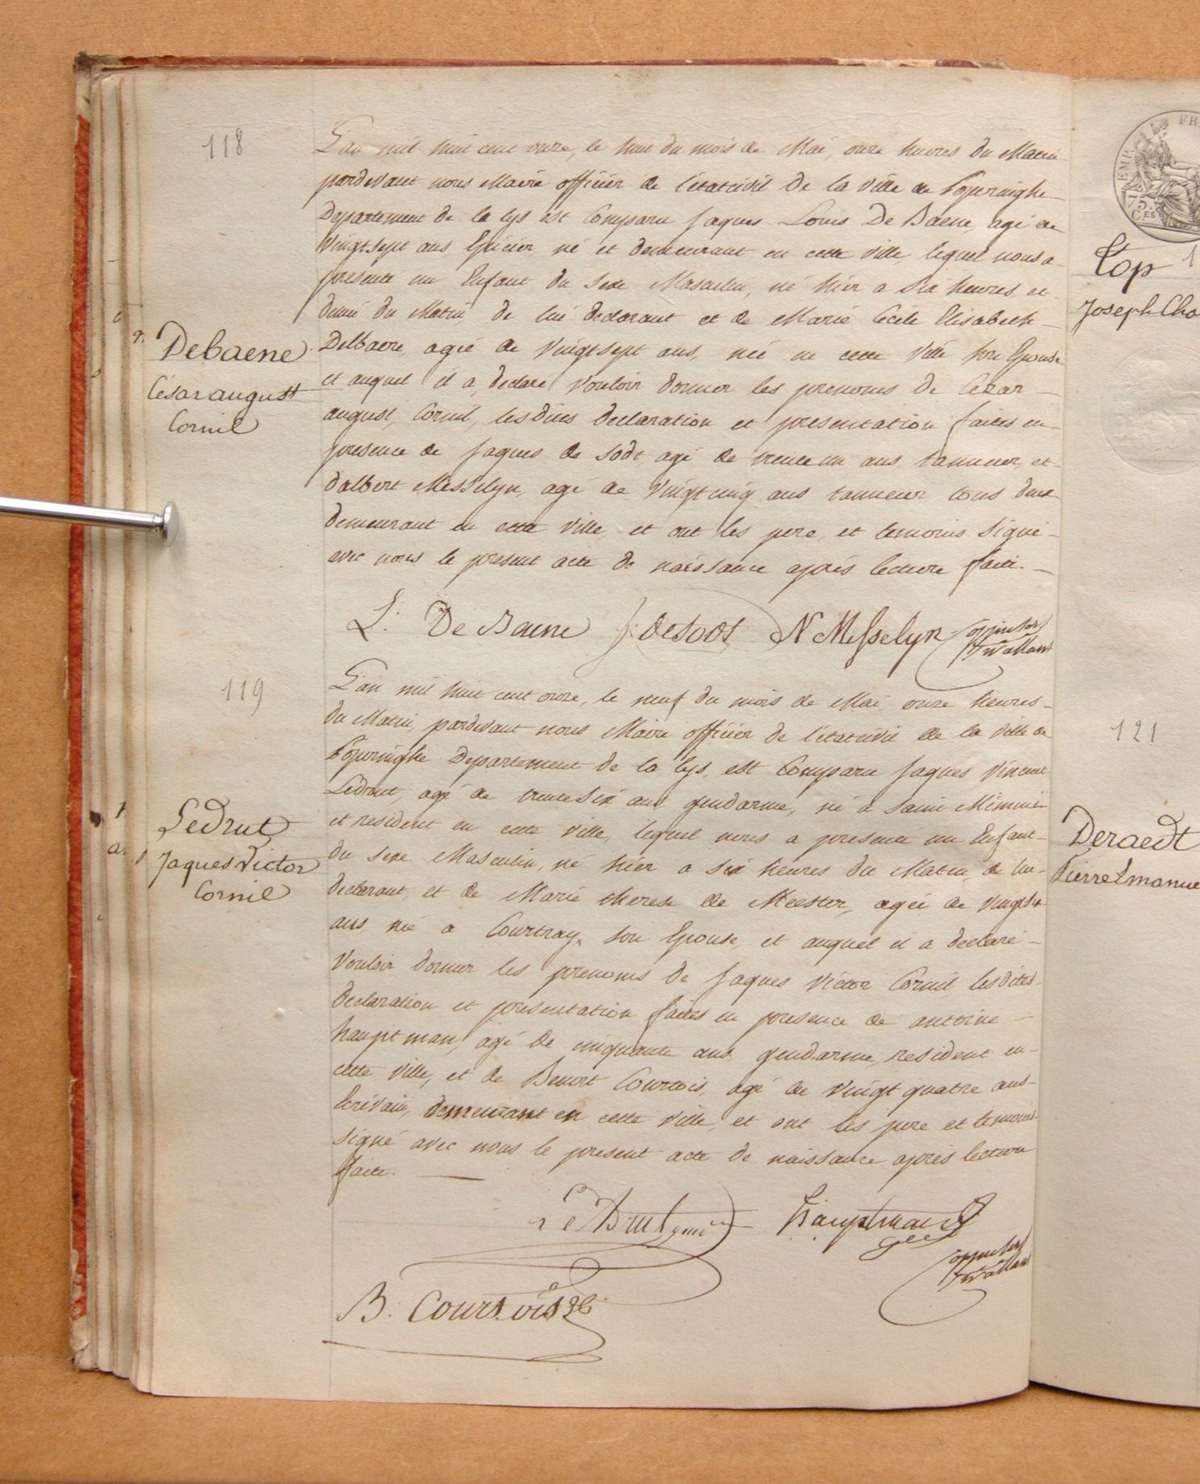 118
Debaene
César august
Cornil
L'an mil huit cent onze, le huit du mois de Mai, onze heures du Matin
pardevant nous Maire officier de l'état civil de la ville de Poperinghe
Departement de la Lys est Comparu Jaques Louis De Baene, agé de
vingtsept ans Epicier, né et demeurant en cette ville, lequel nous a
presenté un Enfant du sexe Masculin, né hier a six heures et
demie du Matin de lui declarant et de Marie Cecile Elisabeth
Delbaere, agée de vingtsept ans, née en cette ville son Epouse
et auquel il a declaré vouloir donner les prenoms de Cesar
august, Cornil, les dites declaration et presentation faites en
presence de Jaques de Sodt agé de trente un ans, tanneur, et
d'albert Messelyn, agé de vingtcinq ans tanneur tous deux
demeurant en cette ville, et ont les pere, et temoins signé
avec nous le present acte de naissance après lecture faite.
L: De Baene J: deSodt N Messelyn
119
Ledrut
Jaques Victor
Cornil
L'an mil huit cent onze, le neuf du mois de Mai onze heures
du Matin, pardevant nous Maire officier de l'état civil de la ville de
Poperinghe Departement de la Lys, est Comparu Jaques Vincent
Ledrut, agé de trente six ans, gendarme, né a Saint
et resident en cette ville, lequel nous a presenté un Enfant
du sexe Masculin, né hier a six heures du Matin, de lui
declarant, et de Marie therese de Meester, agée de vingt
ans née a Courtray, son Epouse, et auquel il a declaré
vouloir donner les prenoms de Jaques Victor Cornil les dites
declaration et presentation faites en presence de antoine
hauptman, agé de cinquante ans, gendarme, resident en
cette ville, et de Benoit Courtois, agé de vingt quatre ans
Ecrivain, demeurant en cette ville, et ont les pere et temoins
signé avec nous le present acte de naissance après lecture
faite.
LeDrut Hauptman
B. Courtois
Top
Joseph
121
Deraedt
Pierre Emanue